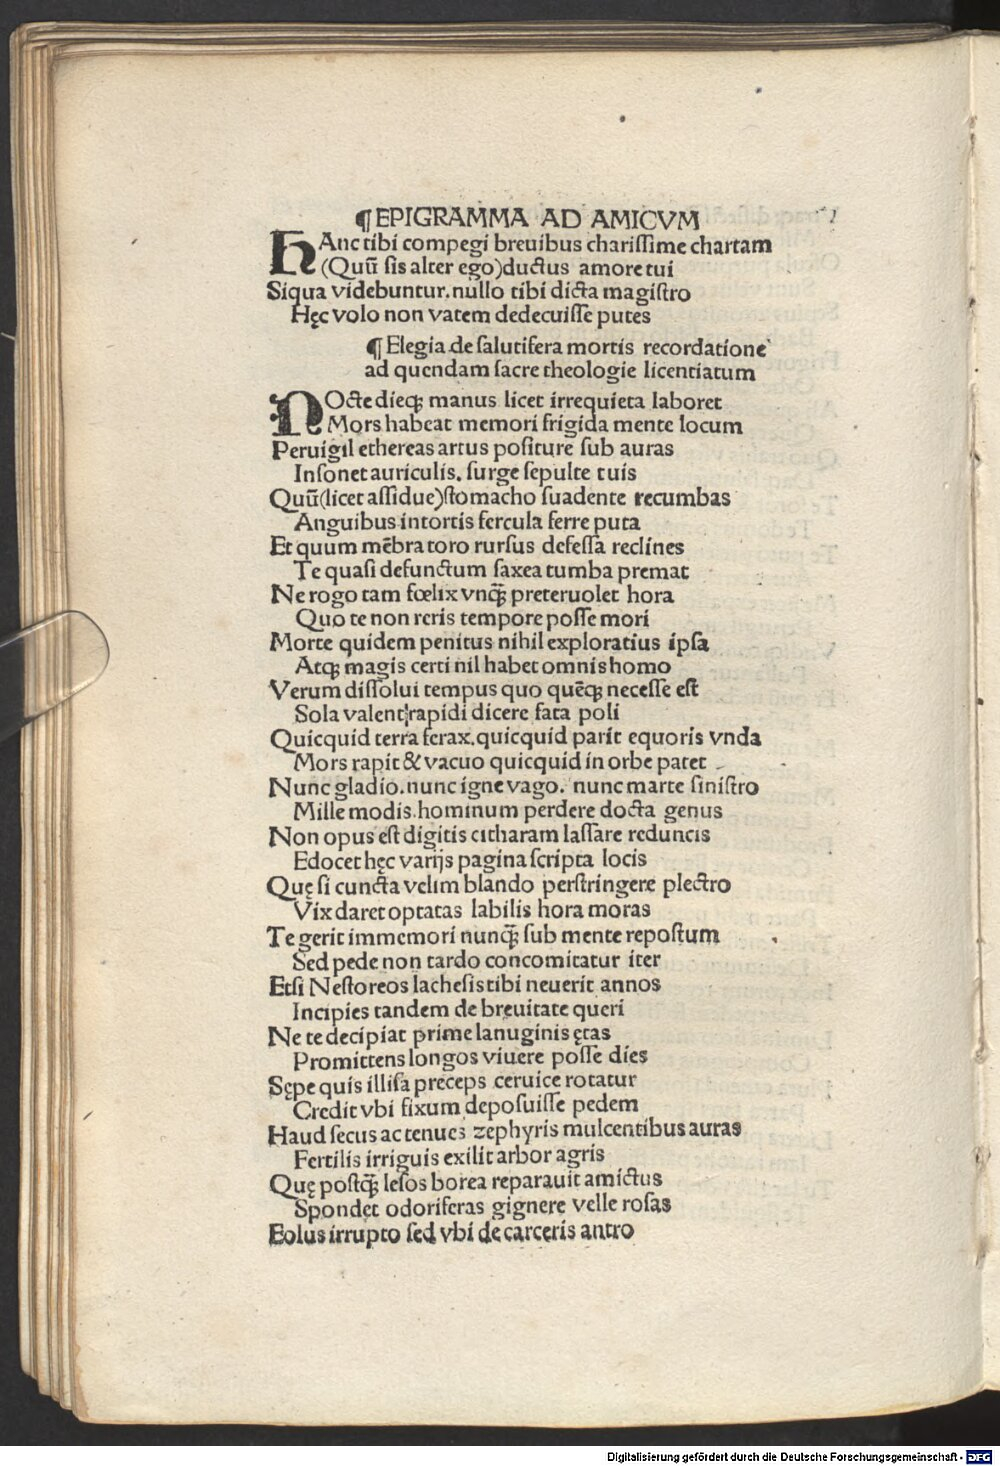 ¶EPIGRAMMA AD AMICVM
HAnc tibi compegi breuibus charissime chartam
(Quũ sis alter ego)ductus amore tui
Siqua videbuntur.nullo tibi dicta magistro
Hęc volo non vatem dedecuisse putes
¶Elegia de salutifera mortis recordatione
ad quendam sacre theologie licentiatum
NOcte dieqꝫ manus licet irrequieta laboret
Mors habeat memori frigida mente locum
Peruigil ethereas artus positure sub auras
Insonet auriculis. surge sepulte tuis
Quũ(licet assidue)stomacho suadente recumbas
Anguibus intortis fercula ferre puta
Et quum mẽbra toro rursus defessa reclines
Te quasi defunctum saxea tumba premat
Ne rogo tam fœlix vnqꝫ̃ preteruolet hora
Quo te non reris tempore posse mori
Morte quidem penitus nihil exploratius ipsa
Atqꝫ magis certi nil habet omnis homo
Verum dissolui tempus quo quẽqꝫ necesse est
Sola valent rapidi dicere fata poli
Quicquid terra ferax.quicquid parit equoris vnda
Mors rapit & vacuo quicquid in orbe patet
Nunc gladio.nunc igne vago. nunc marte sinistro
Mille modis.hominum perdere docta genus
Non opus est digitis citharam lassare reduncis
Edocet hęc varijs pagina scripta locis
Quę si cuncta velim blando perstringere plectro
Vix daret optatas labilis hora moras
Te gerit immemori nunqꝫ̃ sub mente repostum
Sed pede non tardo concomitatur iter
Etsi Nestoreos lachesis tibi neuerit annos
Incipies tandem de breuitate queri
Ne te decipiat prime lanuginis ętas
Promittens longos viuere posse dies
Sępe quis illisa preceps ceruice rotatur
Credit vbi fixum deposuisse pedem
Haud secus ac tenues zephyris mulcentibus auras
Fertilis irriguis exilit arbor agris
Quę postqꝫ̃ lesos borea reparauit amictus
Spondet odoriferas gignere velle rosas
Eolus irrupto sed vbi de carceris antro
Digitalisierung gefördert durch die Deutsche Forschungsgemeinschaft - DFG